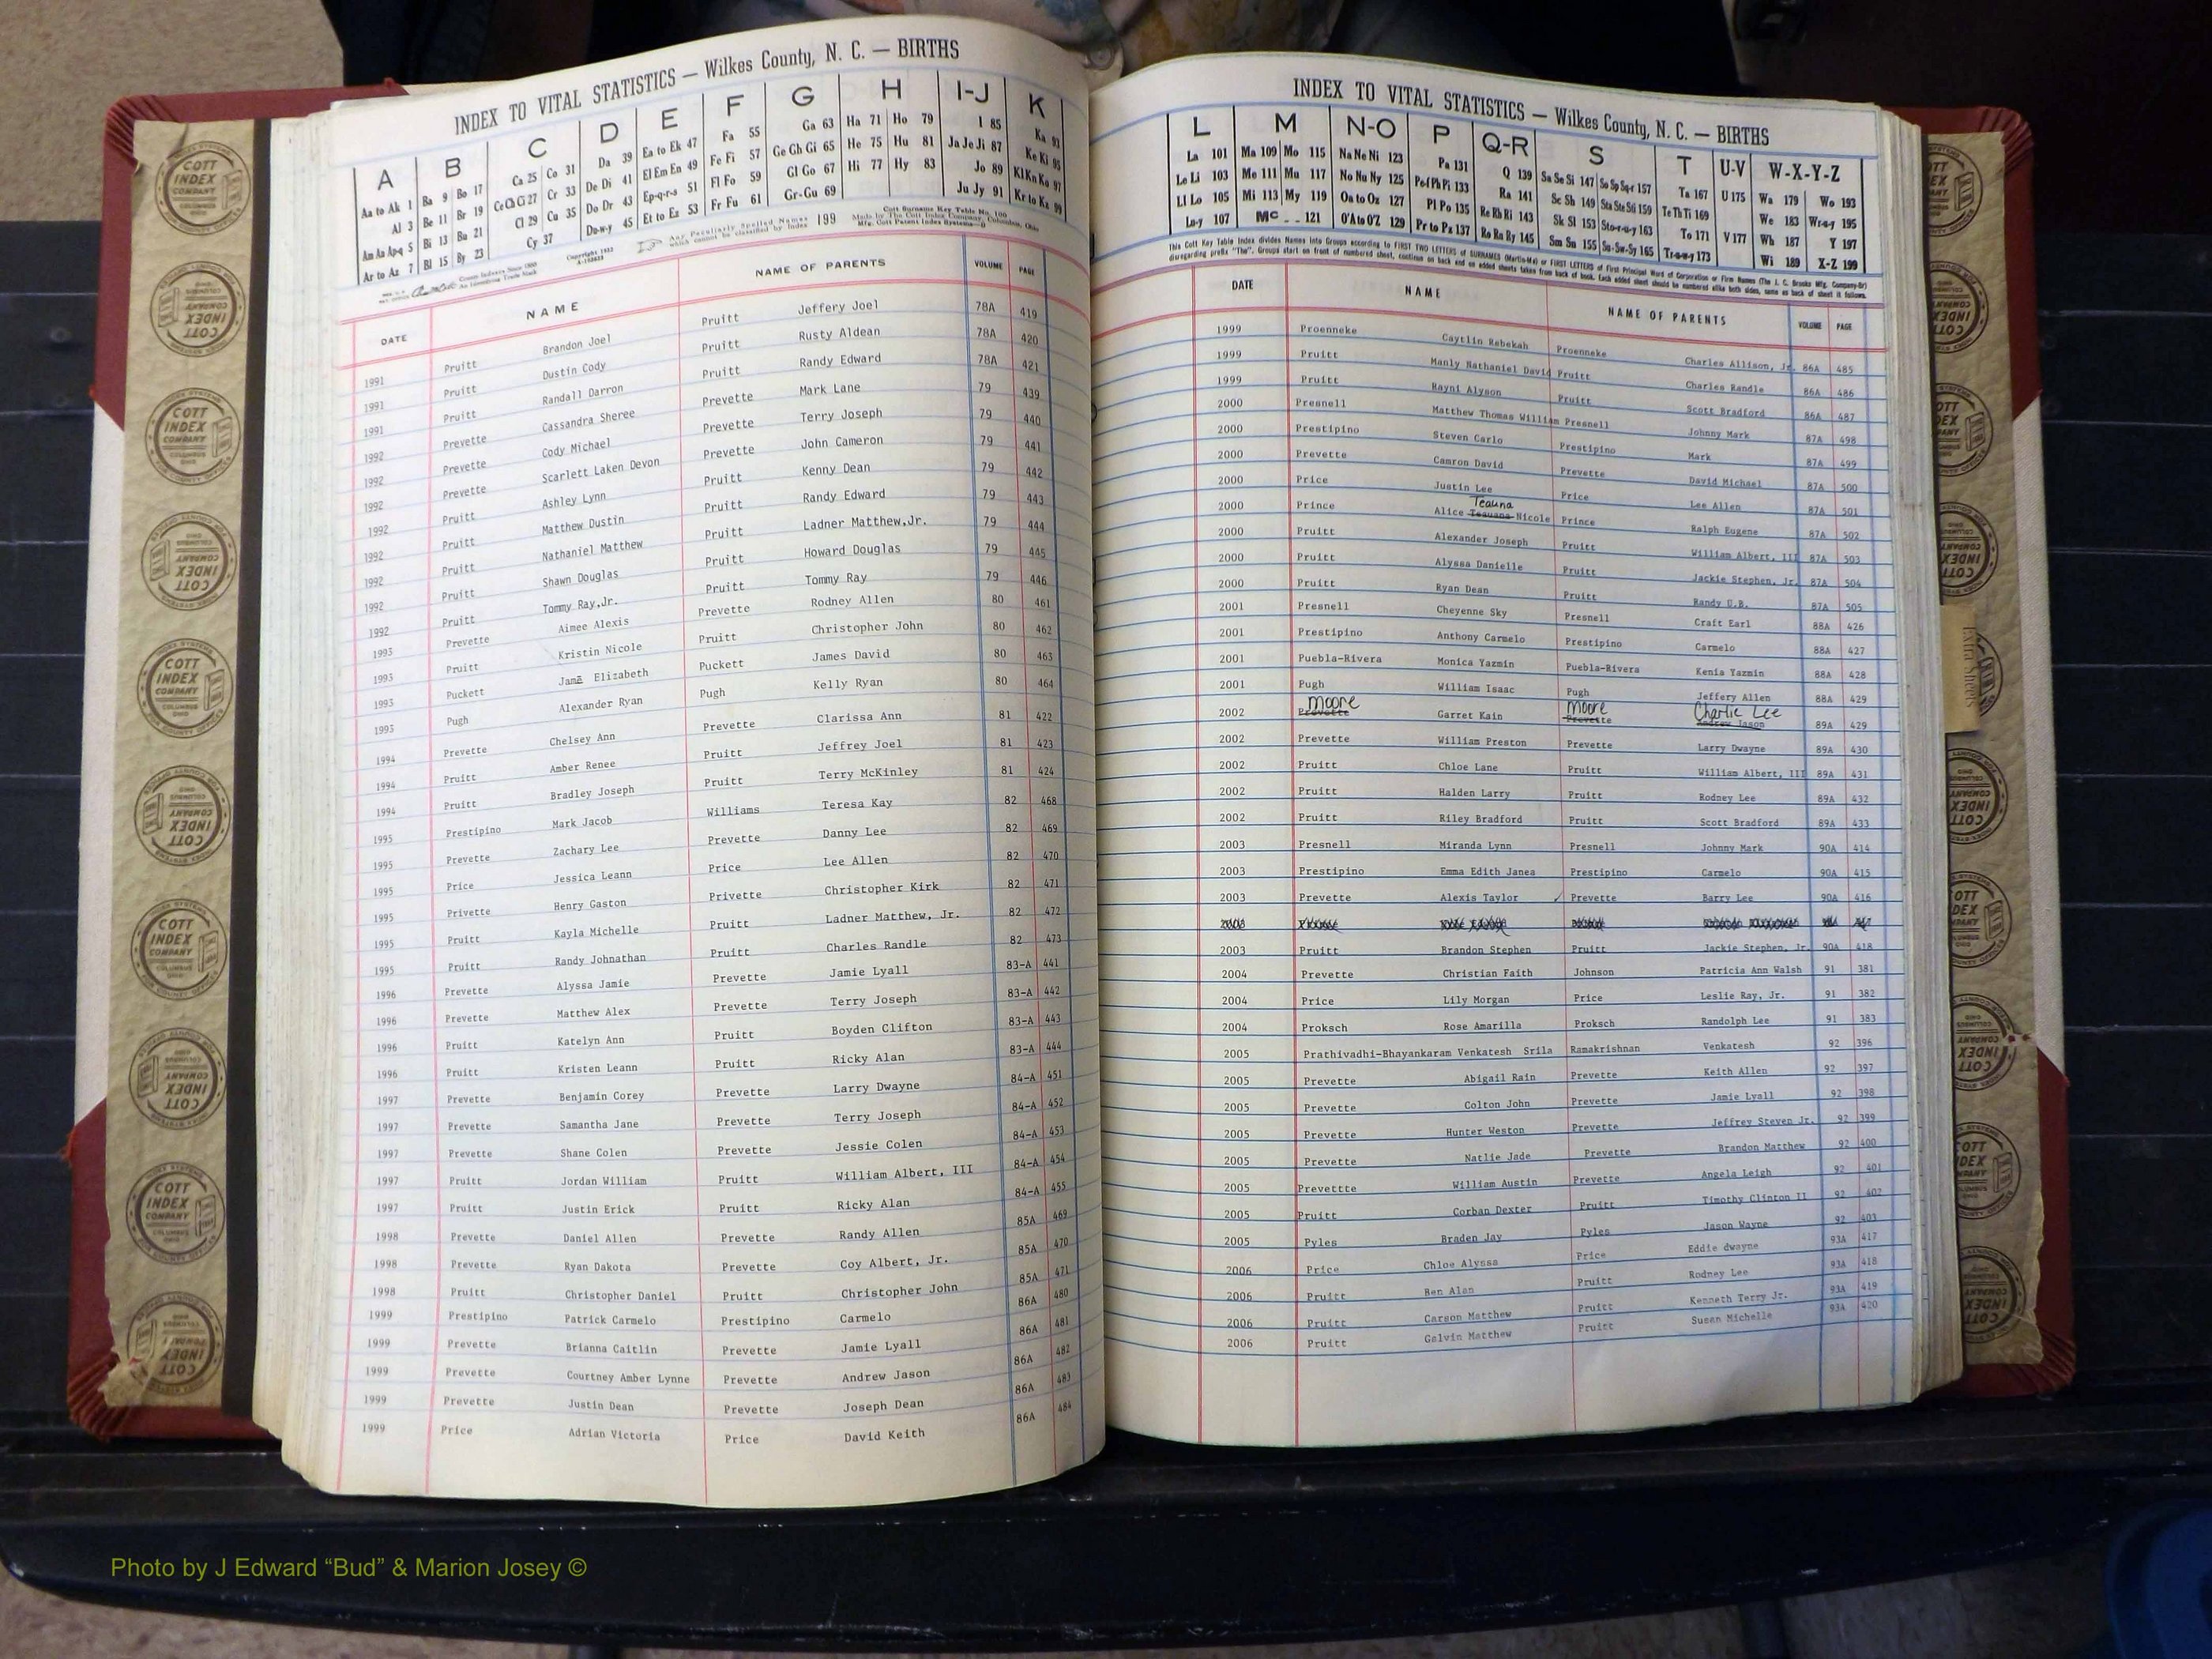 INDEX TO VITAL STATISTICS — Wilkes County, N. C. — BIRTHS
A B C D E F G H I-J K
Aa to Ak 1 Ba 9 Bo 17 Ca 25 Co 31 Da 39 Ea to Ek 47 Fa 55 Ga 63 Ha 71 Ho 79 I 85 Ka 93
Al 3 Be 11 Br 19 Ce Ch Ci 27 Cr 33 De Di 41 El Em En 49 Fe Fi 57 Ge Gh Gi 65 He 75 Hu 81 Ja Je Ji 87 Ke Ki 95
Am An Ap-q 5 Bi 13 Bu 21 Cl 29 Cu 35 Do Dr 43 Ep-q-r-s 51 Fl Fo 59 Gl Go 67 Hi 77 Hy 83 Jo 89 Kl Kn Ko 97
Ar to Az 7 Bl 15 By 23 Cy 37 Du-w-y 45 Et to Ez 53 Fr Fu 61 Gr-Gu 69 Ju Jy 91 Kr to Ku 99
Any Peculiarly Spelled Names which cannot be classified by Index 199
Cott Surname Key Table No. 100
Made by The Cott Index Company, Columbus, Ohio
DATE NAME NAME OF PARENTS VOLUME PAGE
1991 Pruitt Brandon Joel Pruitt Jeffery Joel 78A 419
1991 Pruitt Dustin Cody Pruitt Rusty Aldean 78A 420
1991 Pruitt Randall Darron Pruitt Randy Edward 78A 421
1992 Prevette Cassandra Sheree Prevette Mark Lane 79 439
1992 Prevette Cody Michael Prevette Terry Joseph 79 440
1992 Prevette Scarlett Laken Devon Prevette John Cameron 79 441
1992 Pruitt Ashley Lynn Pruitt Kenny Dean 79 442
1992 Pruitt Matthew Dustin Pruitt Randy Edward 79 443
1992 Pruitt Nathaniel Matthew Pruitt Ladner Matthew,Jr. 79 444
1992 Pruitt Shawn Douglas Pruitt Howard Douglas 79 445
1992 Pruitt Tommy Ray,Jr. Pruitt Tommy Ray 79 446
1993 Prevette Aimee Alexis Prevette Rodney Allen 80 461
1993 Pruitt Kristin Nicole Pruitt Christopher John 80 462
1993 Puckett Jama Elizabeth Puckett James David 80 463
1993 Pugh Alexander Ryan Pugh Kelly Ryan 80 464
1994 Prevette Chelsey Ann Prevette Clarissa Ann 81 422
1994 Pruitt Amber Renee Pruitt Jeffrey Joel 81 423
1994 Pruitt Bradley Joseph Pruitt Terry McKinley 81 424
1995 Prestipino Mark Jacob Williams Teresa Kay 82 468
1995 Prevette Zachary Lee Prevette Danny Lee 82 469
1995 Price Jessica Leann Price Lee Allen 82 470
1995 Privette Henry Gaston Privette Christopher Kirk 82 471
1995 Pruitt Kayla Michelle Pruitt Ladner Matthew, Jr. 82 472
1995 Pruitt Randy Johnathan Pruitt Charles Randle 82 473
1996 Prevette Alyssa Jamie Prevette Jamie Lyall 83-A 441
1996 Prevette Matthew Alex Prevette Terry Joseph 83-A 442
1996 Pruitt Katelyn Ann Pruitt Boyden Clifton 83-A 443
1996 Pruitt Kristen Leann Pruitt Ricky Alan 83-A 444
1997 Prevette Benjamin Corey Prevette Larry Dwayne 84-A 451
1997 Prevette Samantha Jane Prevette Terry Joseph 84-A 452
1997 Prevette Shane Colen Prevette Jessie Colen 84-A 453
1997 Pruitt Jordan William Pruitt William Albert, III 84-A 454
1997 Pruitt Justin Erick Pruitt Ricky Alan 84-A 455
1998 Prevette Daniel Allen Prevette Randy Allen 85A 469
1998 Prevette Ryan Dakota Prevette Coy Albert, Jr. 85A 470
1998 Pruitt Christopher Daniel Pruitt Christopher John 85A 471
1999 Prestipino Patrick Carmelo Prestipino Carmelo 86A 480
1999 Prevette Brianna Caitlin Prevette Jamie Lyall 86A 481
1999 Prevette Courtney Amber Lynne Prevette Andrew Jason 86A 482
1999 Prevette Justin Dean Prevette Joseph Dean 86A 483
1999 Price Adrian Victoria Price David Keith 86A 484
INDEX TO VITAL STATISTICS — Wilkes County, N. C. — BIRTHS
L M N-O P Q-R S T U-V W-X-Y-Z
La 101 Ma 109 Mo 115 Na Ne Ni 123 Pa 131 Q 139 Sa Se Si 147 So Sp Sq-r 157 Ta 167 U 175 Wa 179 Wo 193
Le Li 103 Me 111 Mu 117 No Nu Ny 125 Pe-f Ph Pi 133 Ra 141 Sc Sh 149 Sta Ste Sti 159 Te Th Ti 169 We 183 Wr-u-y 195
Ll Lo 105 Mi 113 My 119 Oa to Oz 127 Pl Po 135 Re Rh Ri 143 Sk Sl 153 Sto-r-u-y 163 To 171 V 177 Wh 187 Y 197
Lu-y 107 Mc 121 O'A to O'Z 129 Pr to Px 137 Ro Ru Ry 145 Sm Sn 155 Su-Sw-Sy 165 Tr-u-w-y 173 Wi 189 X-Z 199
This Cott Key Table Index divides Names into Groups according to FIRST TWO LETTERS of SURNAMES (Martin-Ma) or FIRST LETTERS of First Principal Word of Corporation or Firm Names (The J. C. Brooks Mfg. Company-Br)
disregarding prefix "The". Groups start on front of numbered sheet, continue on back and on added sheets taken from back of book. Each added sheet should be numbered alike both sides, same as back of sheet it follows.
DATE NAME NAME OF PARENTS VOLUME PAGE
1999 Proenneke Caytlin Rebekah Proenneke Charles Allison, Jr. 86A 485
1999 Pruitt Manly Nathaniel David Pruitt Charles Randle 86A 486
1999 Pruitt Rayni Alyson Pruitt Scott Bradford 86A 487
2000 Presnell Matthew Thomas William Presnell Johnny Mark 87A 498
2000 Prestipino Steven Carlo Prestipino Mark 87A 499
2000 Prevette Camron David Prevette David Michael 87A 500
2000 Price Justin Lee Price Lee Allen 87A 501
Teauna
2000 Prince Alice Teauana Nicole Prince Ralph Eugene 87A 502
2000 Pruitt Alexander Joseph Pruitt William Albert, III 87A 503
2000 Pruitt Alyssa Danielle Pruitt Jackie Stephen, Jr. 87A 504
2000 Pruitt Ryan Dean Pruitt Randy O.B. 87A 505
2001 Presnell Cheyenne Sky Presnell Craft Earl 88A 426
2001 Prestipino Anthony Carmelo Prestipino Carmelo 88A 427
2001 Puebla-Rivera Monica Yazmin Puebla-Rivera Kenia Yazmin 88A 428
2001 Pugh William Isaac Pugh Jeffery Allen 88A 429
moore moore Charlie Lee
2002 Prevette Garret Kain Prevette Andrew Jason 89A 429
2002 Prevette William Preston Prevette Larry Dwayne 89A 430
2002 Pruitt Chloe Lane Pruitt William Albert, III 89A 431
2002 Pruitt Halden Larry Pruitt Rodney Lee 89A 432
2002 Pruitt Riley Bradford Pruitt Scott Bradford 89A 433
2003 Presnell Miranda Lynn Presnell Johnny Mark 90A 414
2003 Prestipino Emma Edith Janea Prestipino Carmelo 90A 415
2003 Prevette Alexis Taylor ✓ Prevette Barry Lee 90A 416
2003 Pruitt Brandon Stephen Pruitt Jackie Stephen, Jr. 90A 418
2004 Prevette Christian Faith Johnson Patricia Ann Walsh 91 381
2004 Price Lily Morgan Price Leslie Ray, Jr. 91 382
2004 Proksch Rose Amarilla Proksch Randolph Lee 91 383
2005 Prathivadhi-Bhayankaram Venkatesh Srila Ramakrishnan Venkatesh 92 396
2005 Prevette Abigail Rain Prevette Keith Allen 92 397
2005 Prevette Colton John Prevette Jamie Lyall 92 398
2005 Prevette Hunter Weston Prevette Jeffrey Steven Jr. 92 399
2005 Prevette Natlie Jade Prevette Brandon Matthew 92 400
2005 Prevettte William Austin Prevette Angela Leigh 92 401
2005 Pruitt Corban Dexter Pruitt Timothy Clinton II 92 402
2005 Pyles Braden Jay Pyles Jason Wayne 92 403
2006 Price Chloe Alyssa Price Eddie dwayne 93A 417
2006 Pruitt Ben Alan Pruitt Rodney Lee 93A 418
2006 Pruitt Carson Matthew Pruitt Kenneth Terry Jr. 93A 419
2006 Pruitt Galvin Matthew Pruitt Susan Michelle 93A 420
Extra Sheets
COTT INDEX COMPANY COLUMBUS OHIO
Photo by J Edward “Bud” & Marion Josey ©